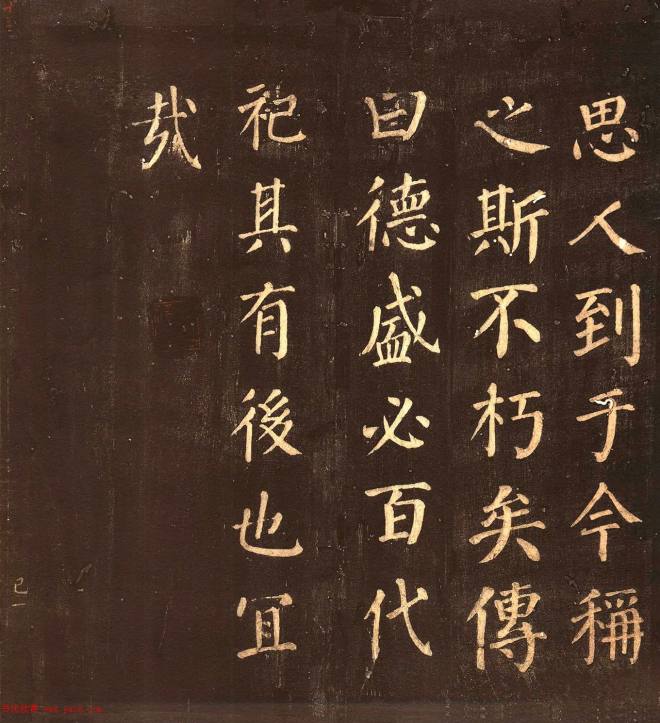 思人到于今稱
之斯不朽矣傳
曰德盛必百代
祀其有後也宜
哉